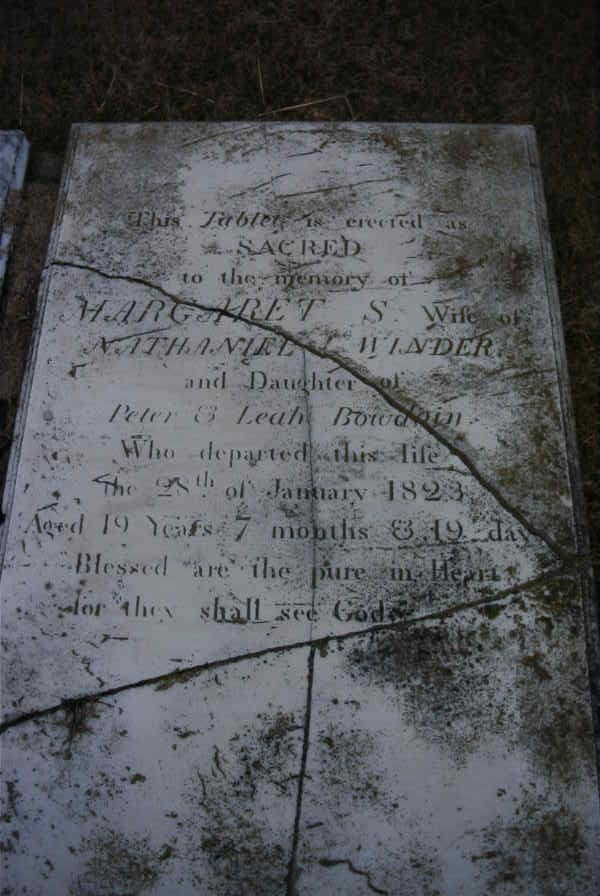 This Tablet is erected as
SACRED
to the memory of
MARGARET S. Wife of
NATHANIEL J. WINDER,
and Daughter of
Peter & Leah Bowdoin.
Who departed this life
the 28th of January 1823
Aged 19 Years 7 months & 19 days
Blessed are the pure in Heart
for they shall see God.